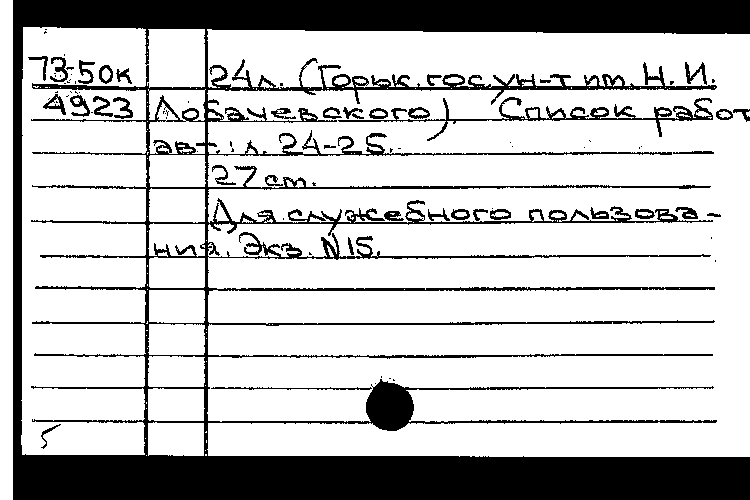 73-50к 24л. (Горьк. гос. ун-т им. Н. И.
4923 Лобачевского). Список работ
авт.: л. 24-25.
27 см.
Для служебного пользова-
ния. Экз. N15.
5